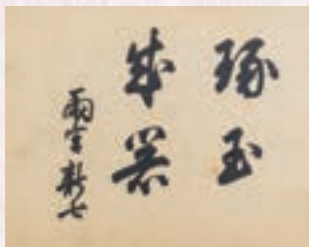 琢玉
成器
雨宮新七